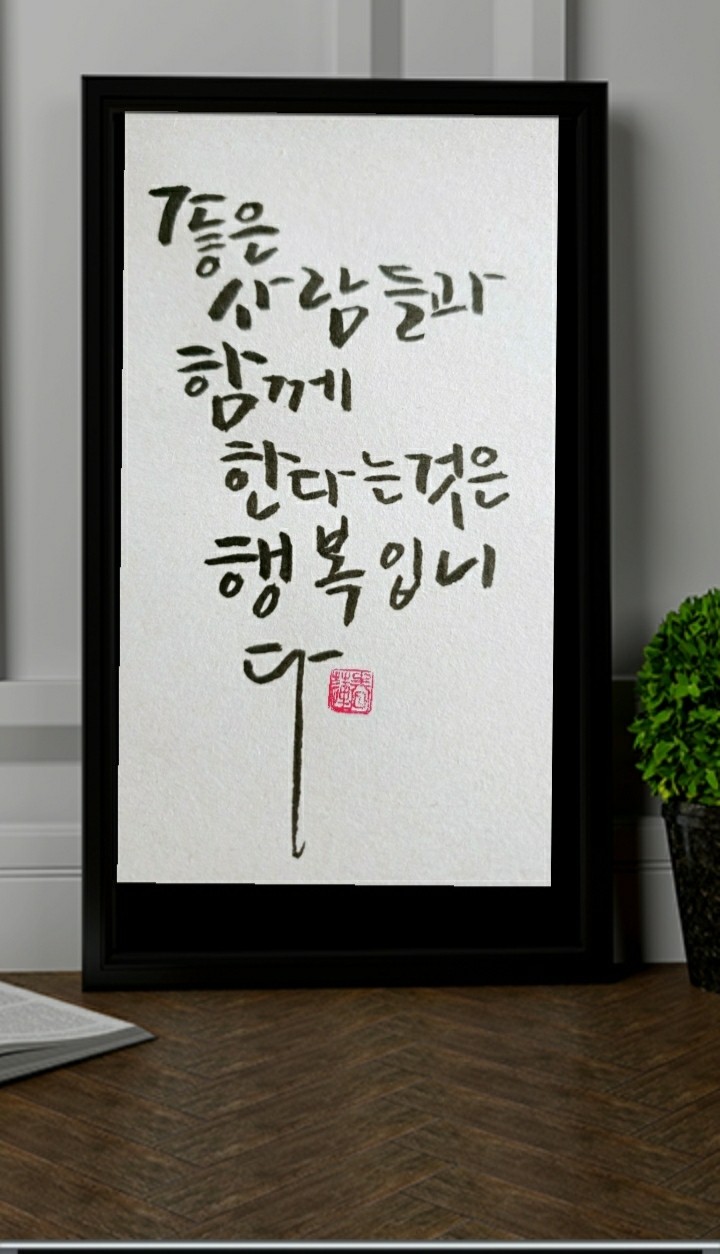 좋은
사람들과
함께
한다는것은
행복입니
다